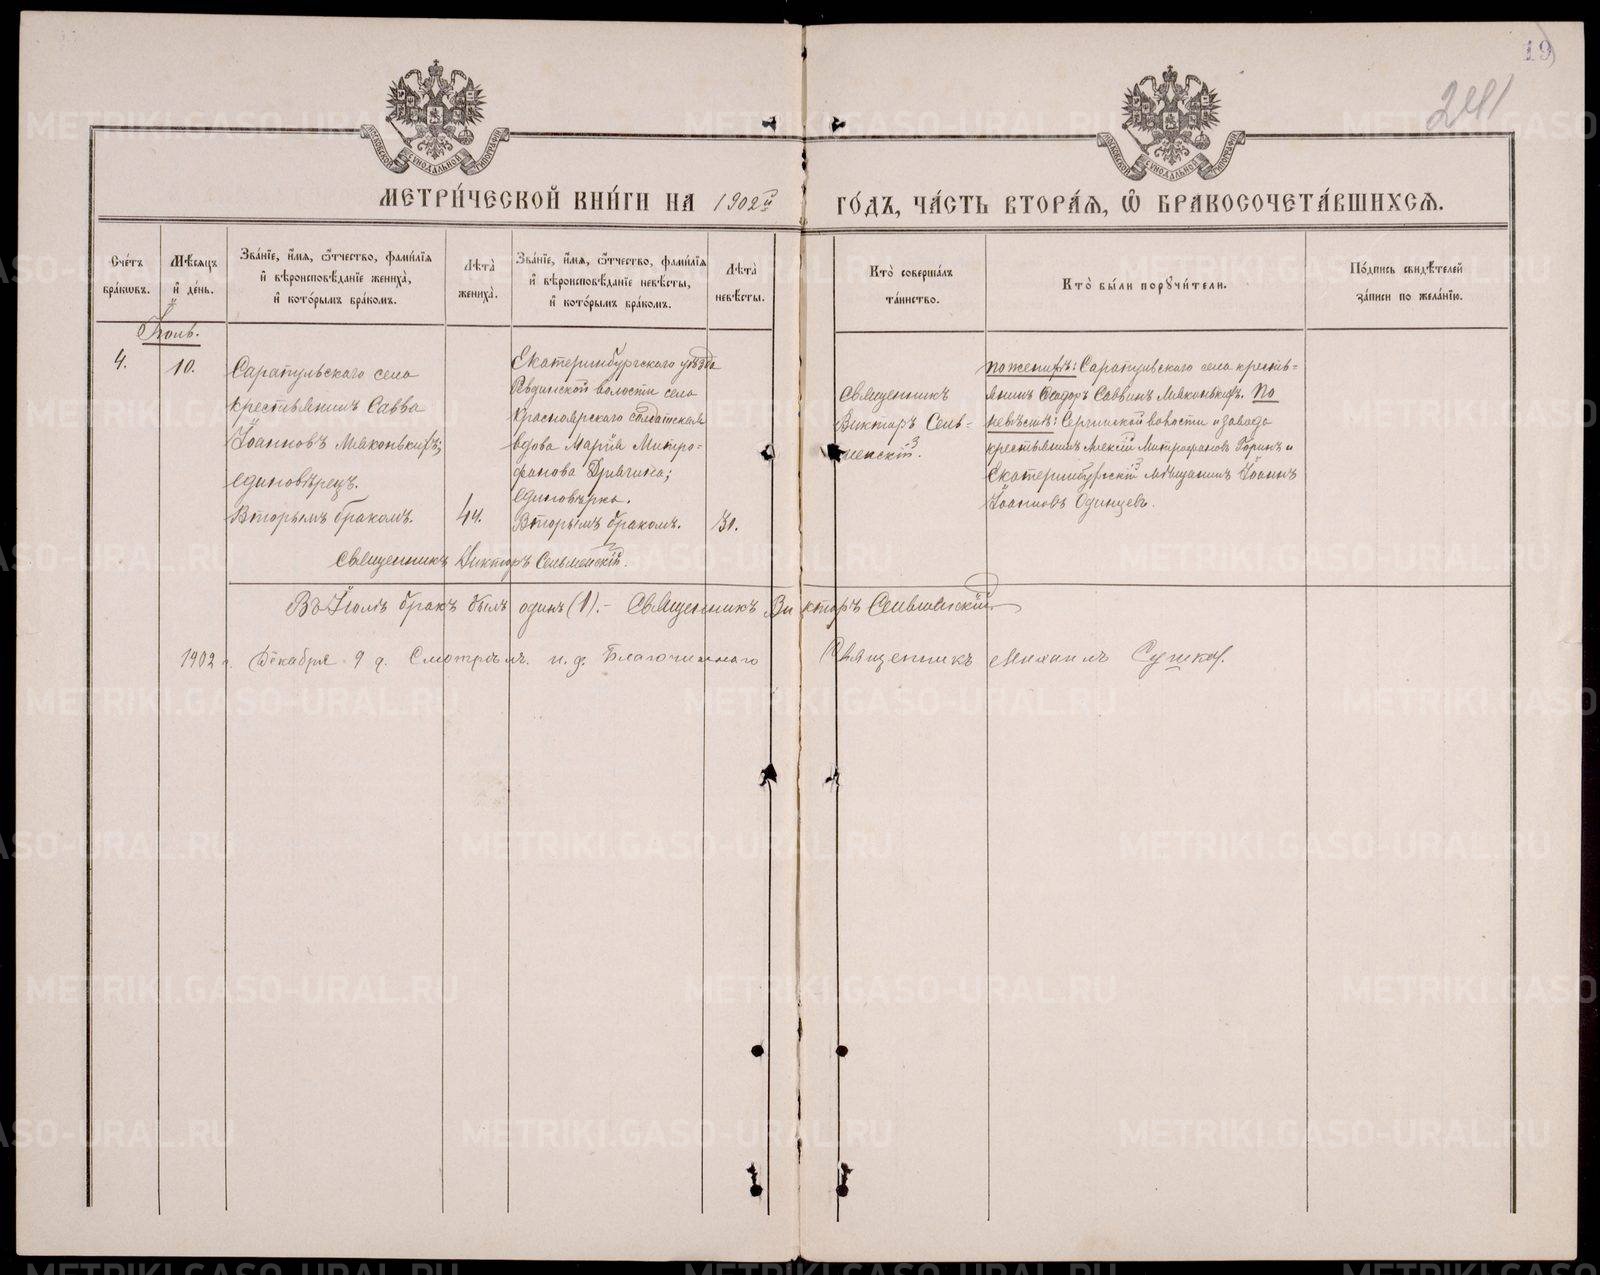 19
241
МЕТРИ́ЧЕСКОЙ КНИ́ГИ НА 1902й ГО́ДЪ, ЧА́СТЬ ВТОРА́Я, Ѿ БРАКОСОЧЕТА́ВШИХСЯ.
Сче́тъ бра́ковъ.
Мѣ́сяцъ и҆ де́нь.
Зва́нїе, и҆́мя, ѻ҆́тчество, фами́лїя и҆ вѣроисповѣ́данїе жениха̀, и҆ кото́рымъ бра́комъ.
Лѣ́та жениха̀.
Зва́нїе, и҆́мя, ѻ҆́тчество, фами́лїя и҆ вѣроисповѣ́данїе невѣ́сты, и҆ кото́рымъ бра́комъ.
Лѣ́та невѣ́сты.
Кто̀ соверша́лъ та́инство.
Кто̀ бы́ли порꙋчи́тели.
По́дпись свидѣ́телей за́писи по жела́нїю.
Іюль.
4.
10.
Сарапульскаго села
крестьянинъ Савва
Іоанновъ
единовѣрецъ.
Вторымъ бракомъ.
44.
Екатеринбургскаго уѣзда
Ревдинской волости села
Красноярскаго солдатская
вдова Марія Митро-
фанова Дрягина;
единовѣрка.
Вторымъ бракомъ.
30.
Священникъ
Викторъ Сель-
менскій.
по женихѣ: Сарапульскаго села кресть-
янинъ Ѳеодоръ Саввинъ По
невѣстѣ: Сергинской волости и завода
крестьянинъ Алексій Митрофановъ Горинъ и
Екатеринбургскій мѣщанинъ Іоаннъ
Іоанновъ Одинцевъ.
Священникъ Викторъ Сельменскій.
Въ Іюлѣ бракъ былъ одинъ (1).- Священникъ Викторъ Сельменскій
1902 г. Декабря 9 д. Смотрѣлъ. и. д. Благочиннаго Священникъ Михаилъ Сушков.